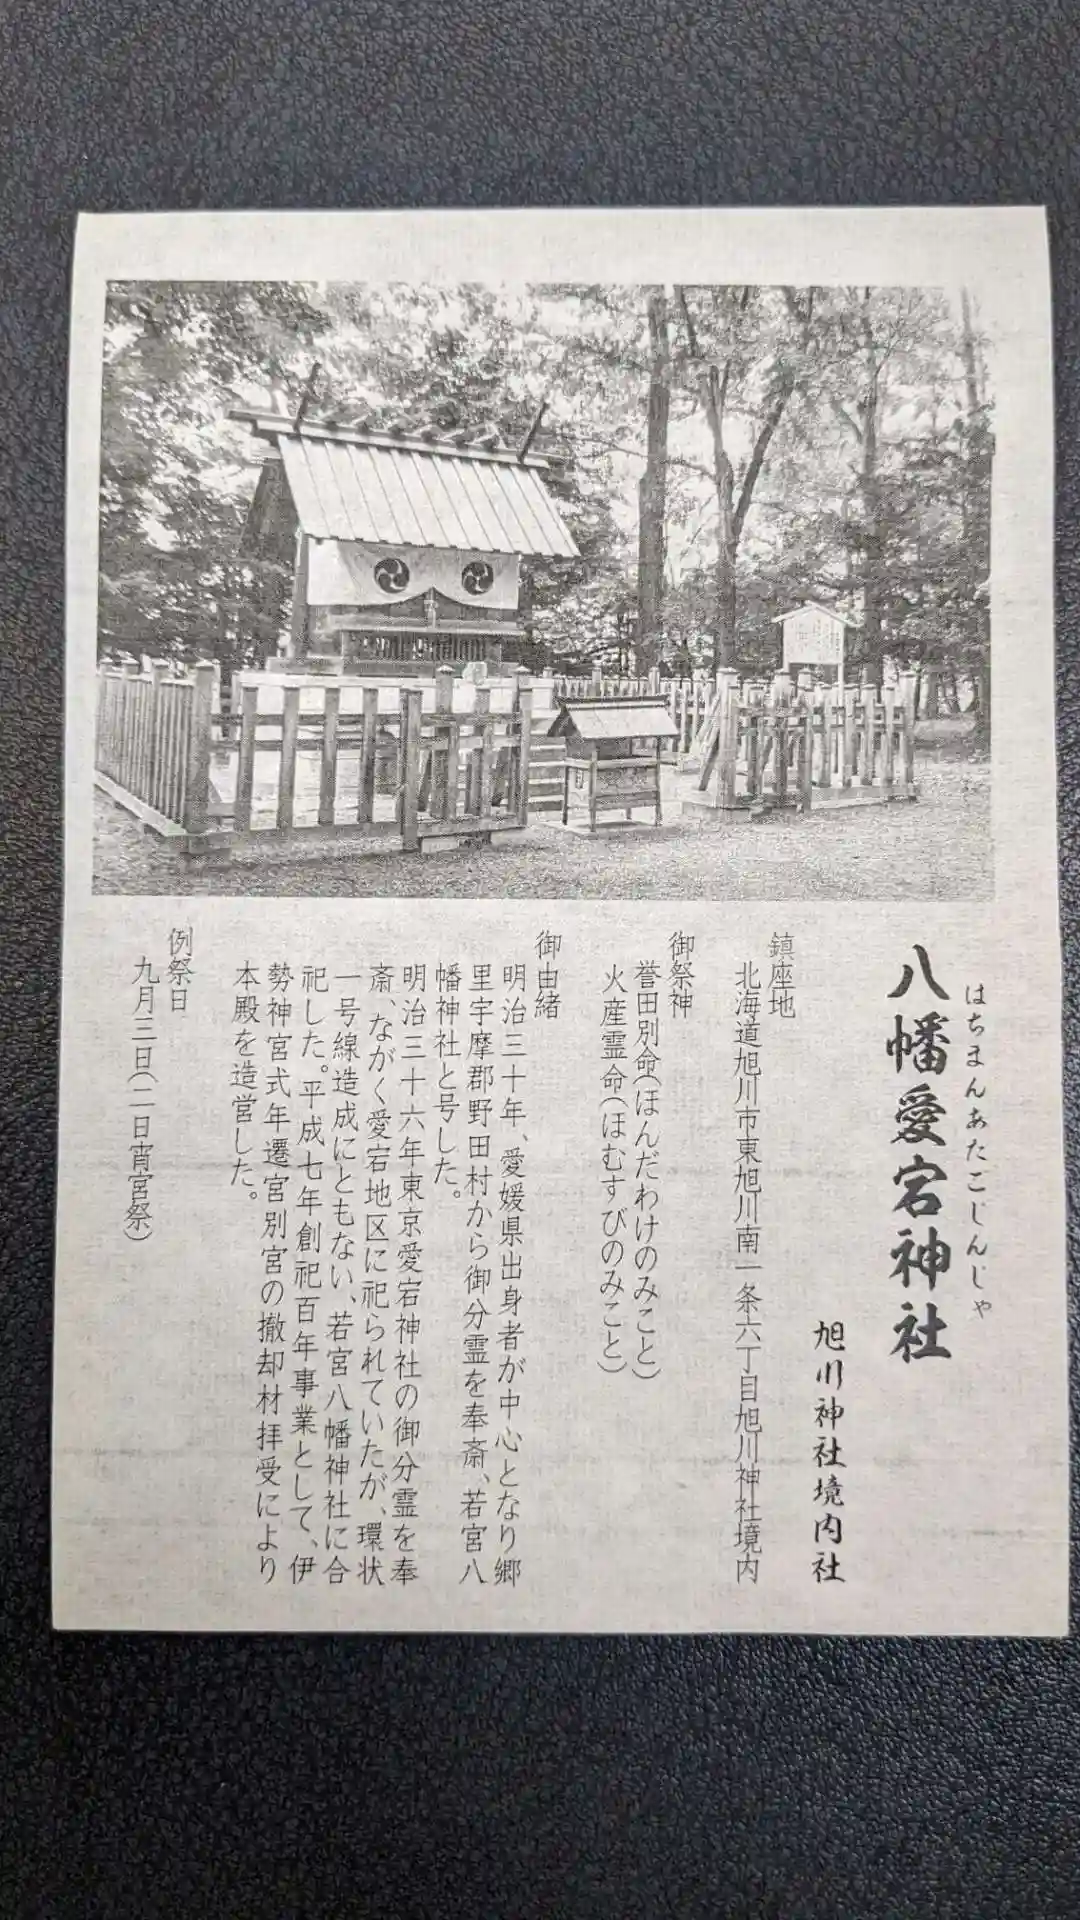 はちまんあたごじんじゃ
八幡愛宕神社
旭川神社境内社
鎮座地
北海道旭川市東旭川南一条六丁目旭川神社境内
御祭神
誉田別命(ほんだわけのみこと)
火産霊命(ほむすびのみこと)
御由緒
明治三十年、愛媛県出身者が中心となり郷
里宇摩郡野田村から御分霊を奉斎、若宮八
幡神社と号した。
明治三十六年東京愛宕神社の御分霊を奉
斎、ながく愛宕地区に祀られていたが、環状
一号線造成にともない、若宮八幡神社に合
祀した。平成七年創祀百年事業として、伊
勢神宮式年遷宮別宮の撤却材拝受により
本殿を造営した。
例祭日
九月三日(二日宵宮祭)